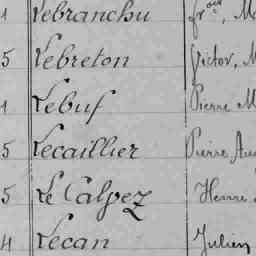 1 Lebranchu frois, M
5 Lebreton Victor, M
1 Lebuf Pierre M
5 Lecaillier Pierre Au
5 Le Calpez Henri
4 Lecan Julien